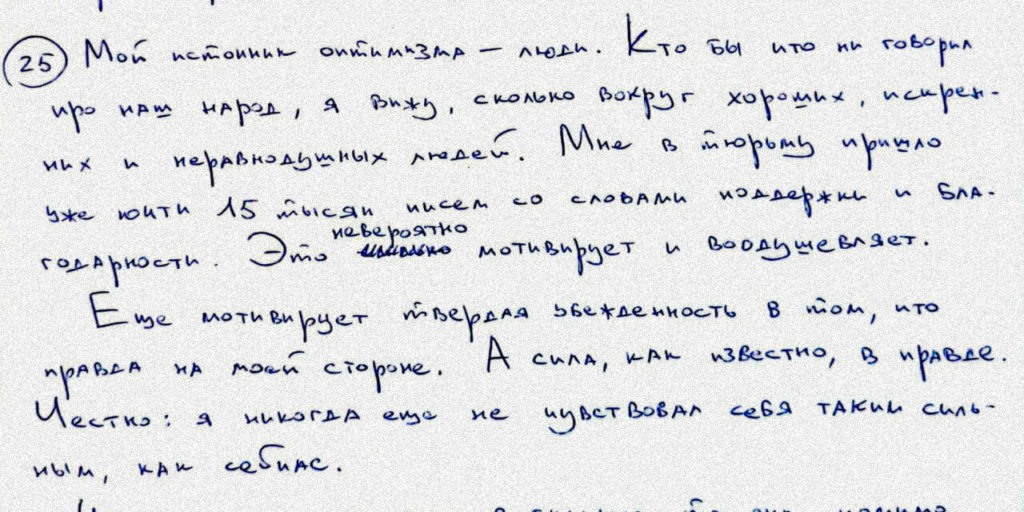 25 Мой источник оптимизма — люди. Кто бы что ни говорил
про наш народ, я вижу, сколько вокруг хороших, искрен-
них и неравнодушных людей. Мне в тюрьму пришло
уже почти 15 тысяч писем со словами поддержки и бла-
невероятно
годарности. Это сильно мотивирует и воодушевляет.
Еще мотивирует твердая убежденность в том, что
правда на моей стороне. А сила, как известно, в правде.
Честно: я никогда еще не чувствовал себя таким силь-
ным, как сейчас.